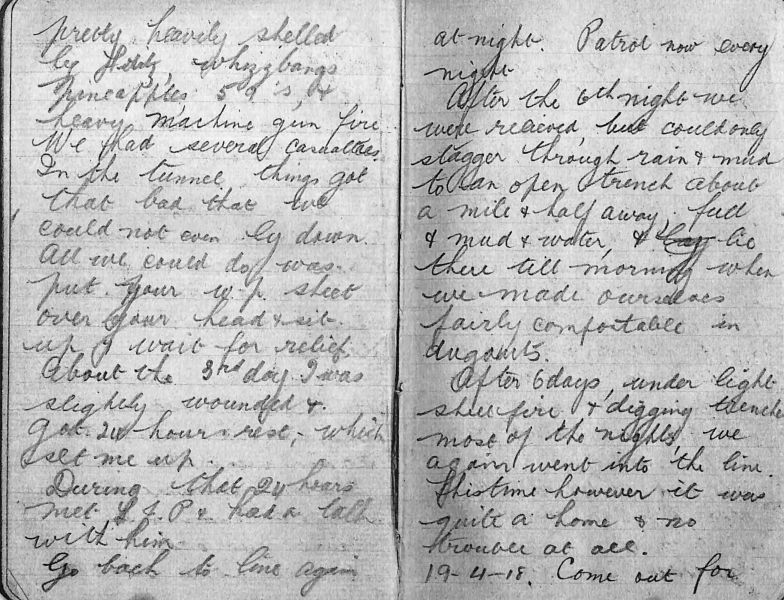 pretty heavily shelled
by Fritz, whizzbangs
Pineapples, 5.9's, &
heavy machine gun fire
We had several casualties
In the tunnel, things got
that bad that we
could not even ly down.
All we could do, was
put your w.p. sheet
over your head & sit
up & wait for relief.
About the 3rd day I was
slightly wounded &
got 24 hours rest, which
set me up.
During that 24 hours
met & had a talk
with him
Go back to line again
at night. Patrol now every
night
After the 6th night we
were relieved, but could only
stagger through rain & mud
to an open trench about
a mile & half away, full
& mud & water, & lie
there till morning when
we made ourselves
fairly comfortable in
dugouts.
After 6 days, under light
shell fire & digging trenches
most of the nights, we
again went into the line.
This time however it was
quite a home & no
trouble at all.
19-4-18. Come out for